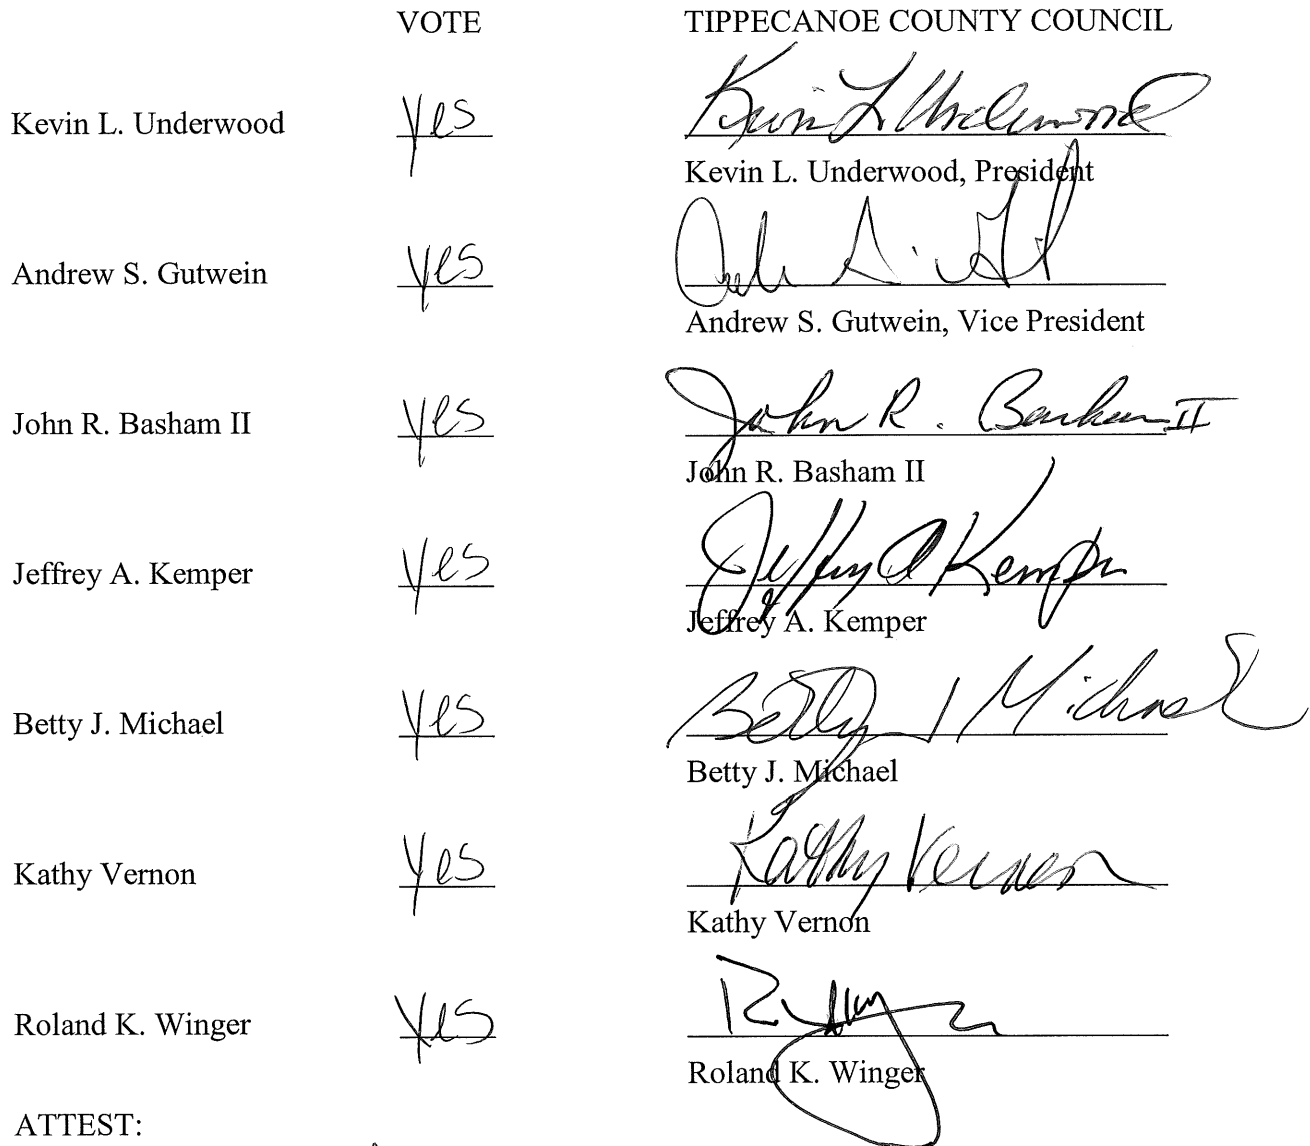 VOTE TIPPECANOE COUNTY COUNCIL
Kevin L. Underwood Yes Kevin L Underwood
Kevin L. Underwood, President
Andrew S. Gutwein Yes
Andrew S. Gutwein, Vice President
John R. Basham II Yes John R. Basham II
John R. Basham II
Jeffrey A. Kemper Yes Jeffrey A Kemper
Jeffrey A. Kemper
Betty J. Michael Yes Betty J Michael
Betty J. Michael
Kathy Vernon Yes Kathy Vernon
Kathy Vernon
Roland K. Winger Yes
Roland K. Winger
ATTEST: